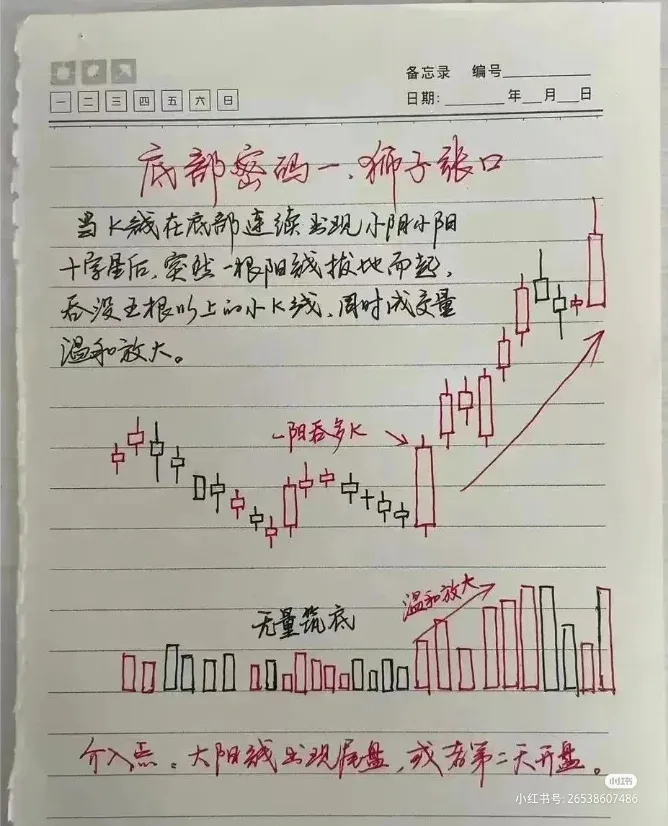 备忘录 编号
一 二 三 四 五 六 日
日期: 年 月 日
底部密码一.狮子张口
当K线在底部连续出现小阴小阳
十字星后,突然一根阳线拔地而起,
吞没五根以上的小K线,同时成交量
温和放大。
一阳吞多K
温和放大
无量筑底
介入点。大阳线出现尾盘,或者第二天开盘。
小红书
小红书号: 26538607486